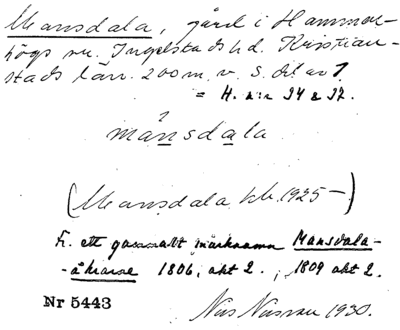 Mansdala, gård i Hammen-
högs sn. Ingelstads hd. Kristian-
stads län. 200 m. v. S. del av 7
= H. n:r 34 & 37.
månsdala
(Mansdala kb. 1925–)
Fr. ett gammalt marknamn Mansdala-
-åkrarne 1806, akt 2., 1809 akt 2.
Nr 5443
Nils 1930.